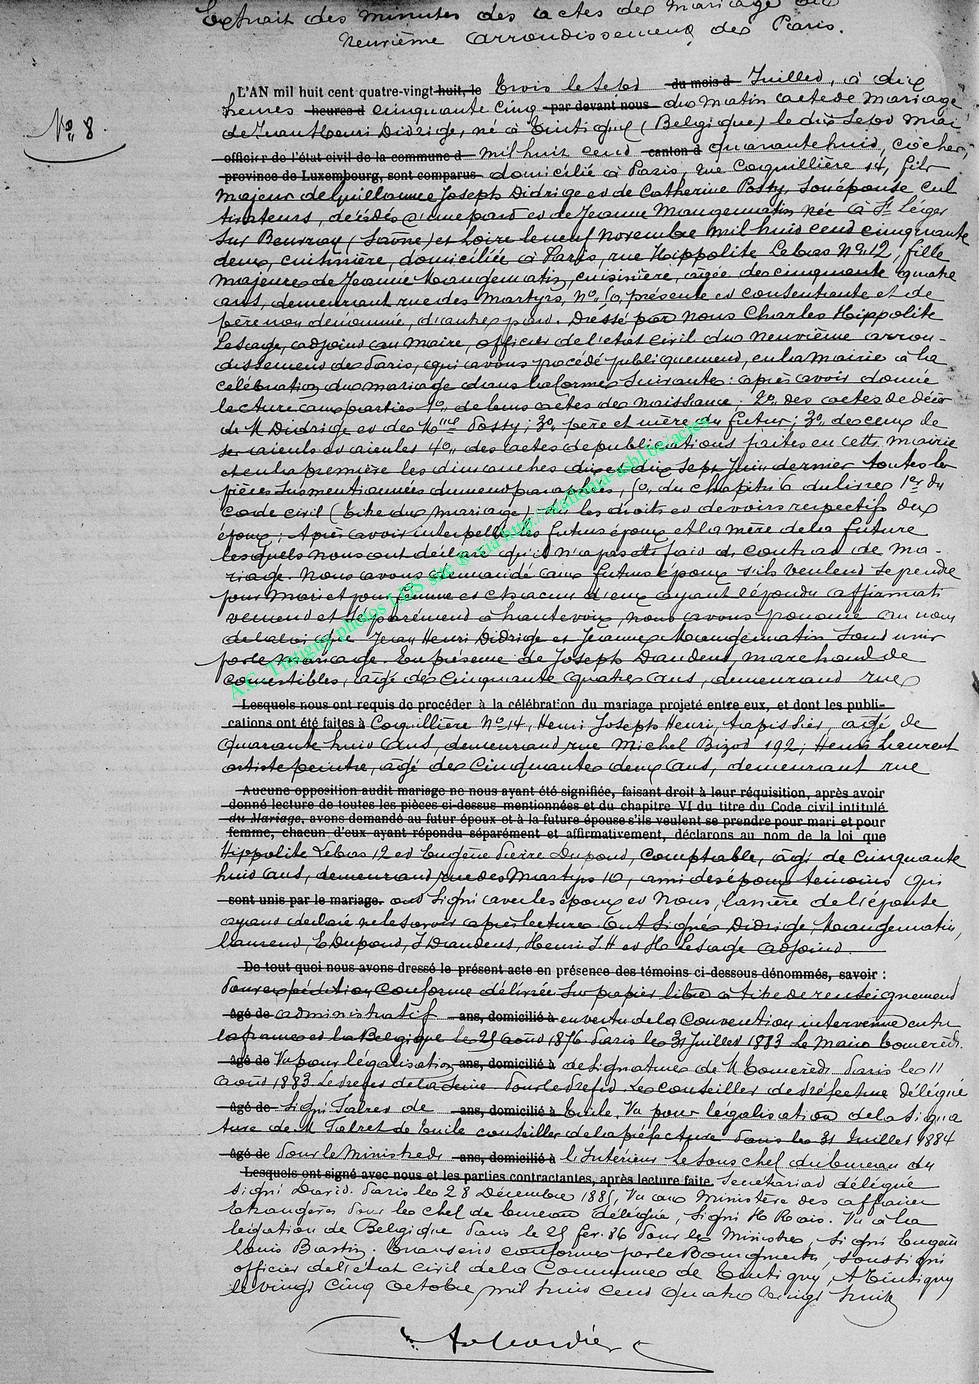 Extrait des minutes des actes de mariage du
Neuvième arrondissement de Paris.
N° 8.
L'AN mil huit cent quatre-vingt huit, le trois le sept du mois d Juillet, à dix
heures heures d cinquante cinq par devant nous du matin acte de Mariage
de Jean Henri Didrige, né à Tintigny (Belgique) le dix sept mai
officier de l'état civil de la commune d mil huit cent canton d quarante huit, cocher,
province de Luxembourg, sont comparus domicilié à Paris, rue Coquillière 14, fils
majeur de Guillaume Joseph Didrige et de Catherine Possy, son épouse cul
tivateurs, décédés d'une part et de Jeanne Maugematin née à St Léger
sur Beuvray (Saône) et Loire le neuf novembre mil huit cent cinquante
deux, cuisinière, domiciliée à Paris, rue Hippolite Lebas N° 12, fille
majeure de Jeanne Maugematin, cuisinière, âgée de cinquante quatre
ans, demeurant rue des Martyrs, N° 10, présente et consentante et de
père non dénommé, d'autre part. Dressé par nous Charles Hippolite
Lesage, adjoint au Maire, officier de l'état civil du neuvième arron-
dissement de Paris, qui avons procédé publiquement, en la mairie à la
célébration du mariage dans la forme suivante: après avoir donné
lecture aux parties 1° de leurs actes de naissance; 2° des actes de décès
de M Didrige et de Possy; 3° père et mère du futur; 3° de ceux de
ses aïeuls et aïeules 4° des actes de publications faites en cette mairie
et en la première les dimanches dix sept Juin dernier toutes les
pièces susmentionnées dument paraphées, 5° du chapitre 6 du livre 1er du
Code civil (titre du mariage) sur les droits et devoirs respectifs des
époux; Après avoir interpellé les futurs époux et la mère de la future
lesquels nous ont déclaré qu'il n'a pas été fait de contrat de ma-
riage. Nous avons demandé aux futurs époux s'ils veulent se prendre
pour Mari et pour femme et chacun d'eux ayant répondu affirmati
vement et séparément à haute voix, nous avons prononcé au nom
de la loi que Jean Henri Didrige et Jeanne Maugematin sont unis
par le mariage. En présence de Joseph Daudens, marchand de
comestibles, âgé de cinquante quatre ans, demeurant rue
Lesquels nous ont requis de procéder à la célébration du mariage projeté entre eux, et dont les publi-
cations ont été faites à Coquillière N° 14, Henri Joseph Henri, tapissier, âgé de
quarante huit ans, demeurant rue Michel Bizot 192, Henri Laurent
artiste peintre, âgé de cinquante deux ans, demeurant rue
Aucune opposition audit mariage ne nous ayant été signifiée, faisant droit à leur réquisition, après avoir
donné lecture de toutes les pièces ci-dessus mentionnées et du chapitre VI du titre du Code civil intitulé
du Mariage, avons demandé au futur époux et à la future épouse s'ils veulent se prendre pour mari et pour
femme, chacun d'eux ayant répondu séparément et affirmativement, déclarons au nom de la loi que
Hippolite Lebas 12 et Eugène Pierre Dupond, comptable, âgé de cinquante
huit ans, demeurant rue des Martyrs 10, amis des époux témoins qui
sont unis par le mariage. ont signé avec les époux et Nous, la mère de l'épouse
ayant déclaré ne le savoir après lecture. Ont signé Didrige, Maugematin,
Laurent, E Dupond, J Daudens, Henri J H et H Lesage adjoint.
De tout quoi nous avons dressé le présent acte en présence des témoins ci-dessous dénommés, savoir :
Pour expédition conforme délivrée sur papier libre à titre de renseignement
âgé de administratif ans, domicilié à en vertu de la Convention intervenue entre
la france et la Belgique le 25 août 1876 Paris le 31 Juillet 1883 Le Maire
âgé de Vu pour légalisation ans, domicilié à de signature de M Paris le 11
août 1883 Le Préfet de la Seine Pour le Préfet Le conseiller de Préfecture délégué
âgé de Signé Talret de ans, domicilié à Emile, Vu pour légalisation de la signa
ture de M Talret de Emile conseiller de la préfecture Paris le 31 Juillet 1884
âgé de Pour le Ministre de ans, domicilié à l'Intérieur le sous chef du bureau du
Lesquels ont signé avec nous et les parties contractantes, après lecture faite. secrétariat délégué
signé David. Paris le 28 Décembre 1885, Vu au Ministère des affaires
Etrangères Pour le chef de bureau délégué, signé H Rais. Vu à la
légation de Belgique Paris le 25 fev. 86 Pour le Ministre, signé Eugène
Louis Bastin. Transcrit conforme par le Bourgmestre, soussigné
officier de l'état civil de la Commune de Tintigny, A Tintigny
le vingt cinq octobre mil huit cent quatre vingt huit
A.C. Tintigny photos LDS site